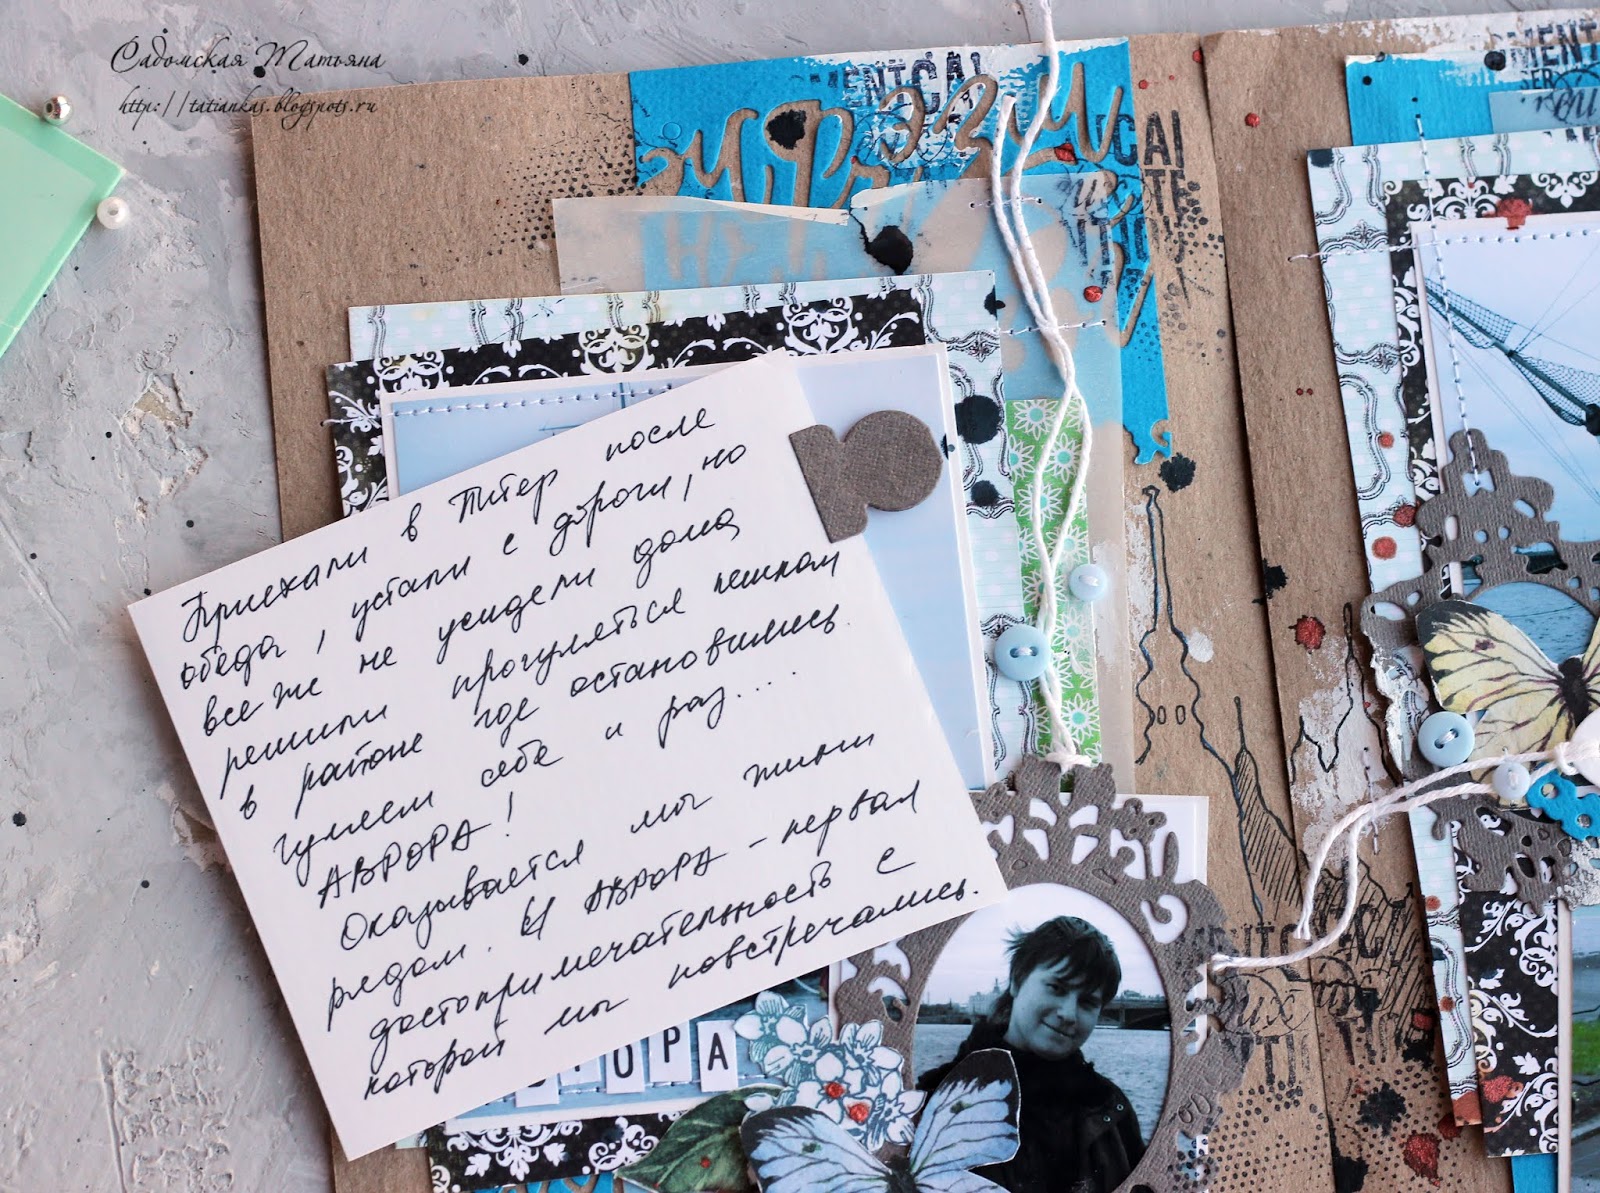 Садомская Татьяна
http://tatiankas.blogspots.ru
MENTCAI
CAI
Приехали в Питер после
обеда, устали с дороги, но
все же не усидели дома
решили прогуляться пешком
в районе где остановились.
гуляем себе и раз....
АВРОРА!
Оказывается мы жили
рядом. И АВРОРА - первая
достопримечательность с
которой мы повстречались.
РОРА